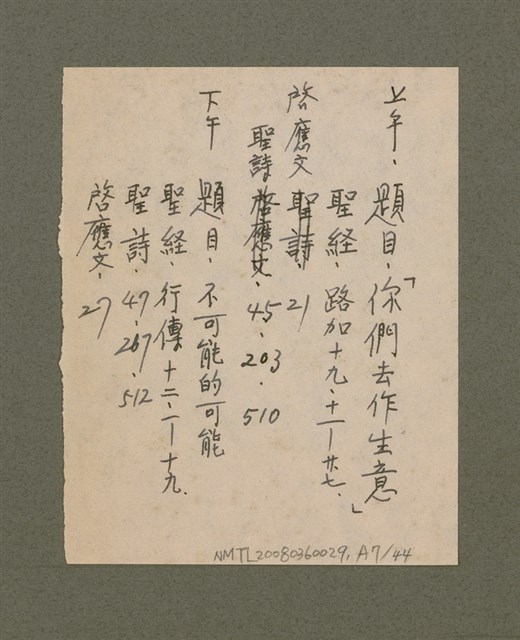 上午、題目、「你們去作生意」
聖経、路加十九、十一－廿七、
啓應文 聖詩、21
聖詩 啓應文、45、203、510
下午 題目、不可能的可能
聖経、行傳十二、一－十九、
聖詩、47、267、512
啓應文、27
NMTL20080360029, A7/44